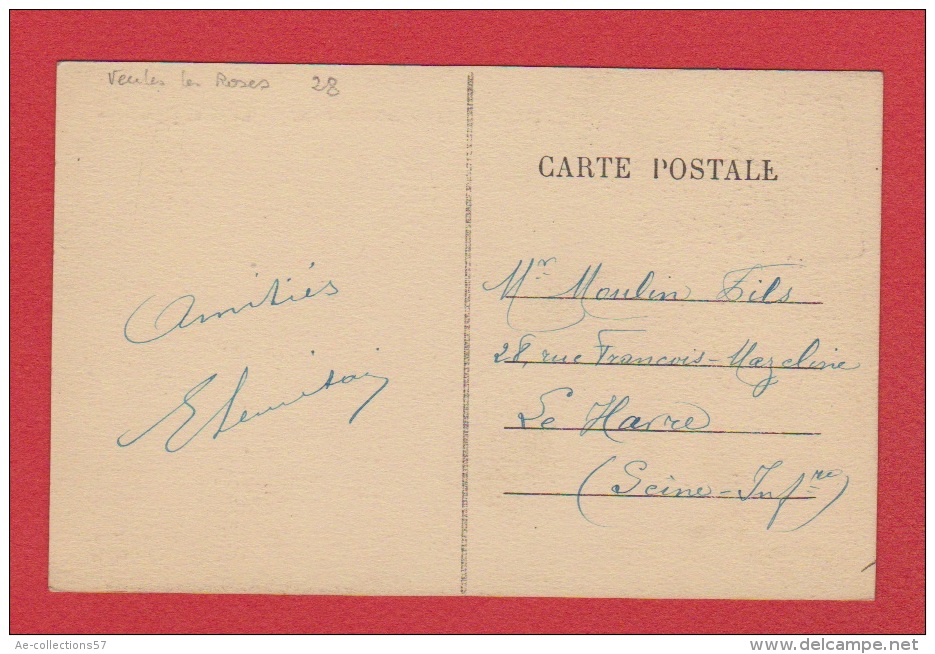 Veules les Roses 28
CARTE POSTALE
Amitiés
Mr Moulin Fils
28, rue François-Mazeline
Le Havre
(Seine-Infre)
Ae-collections57
www.delcampe.net